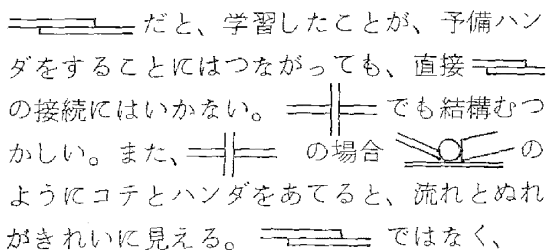 だと、学習したことが、予備ハン
ダをすることにはつながっても、直接
の接続にはいかない。 でも結構むつ
かしい。また、 の場合 の
ようにコテとハンダをあてると、流れとぬれ
がきれいに見える。 ではなく、